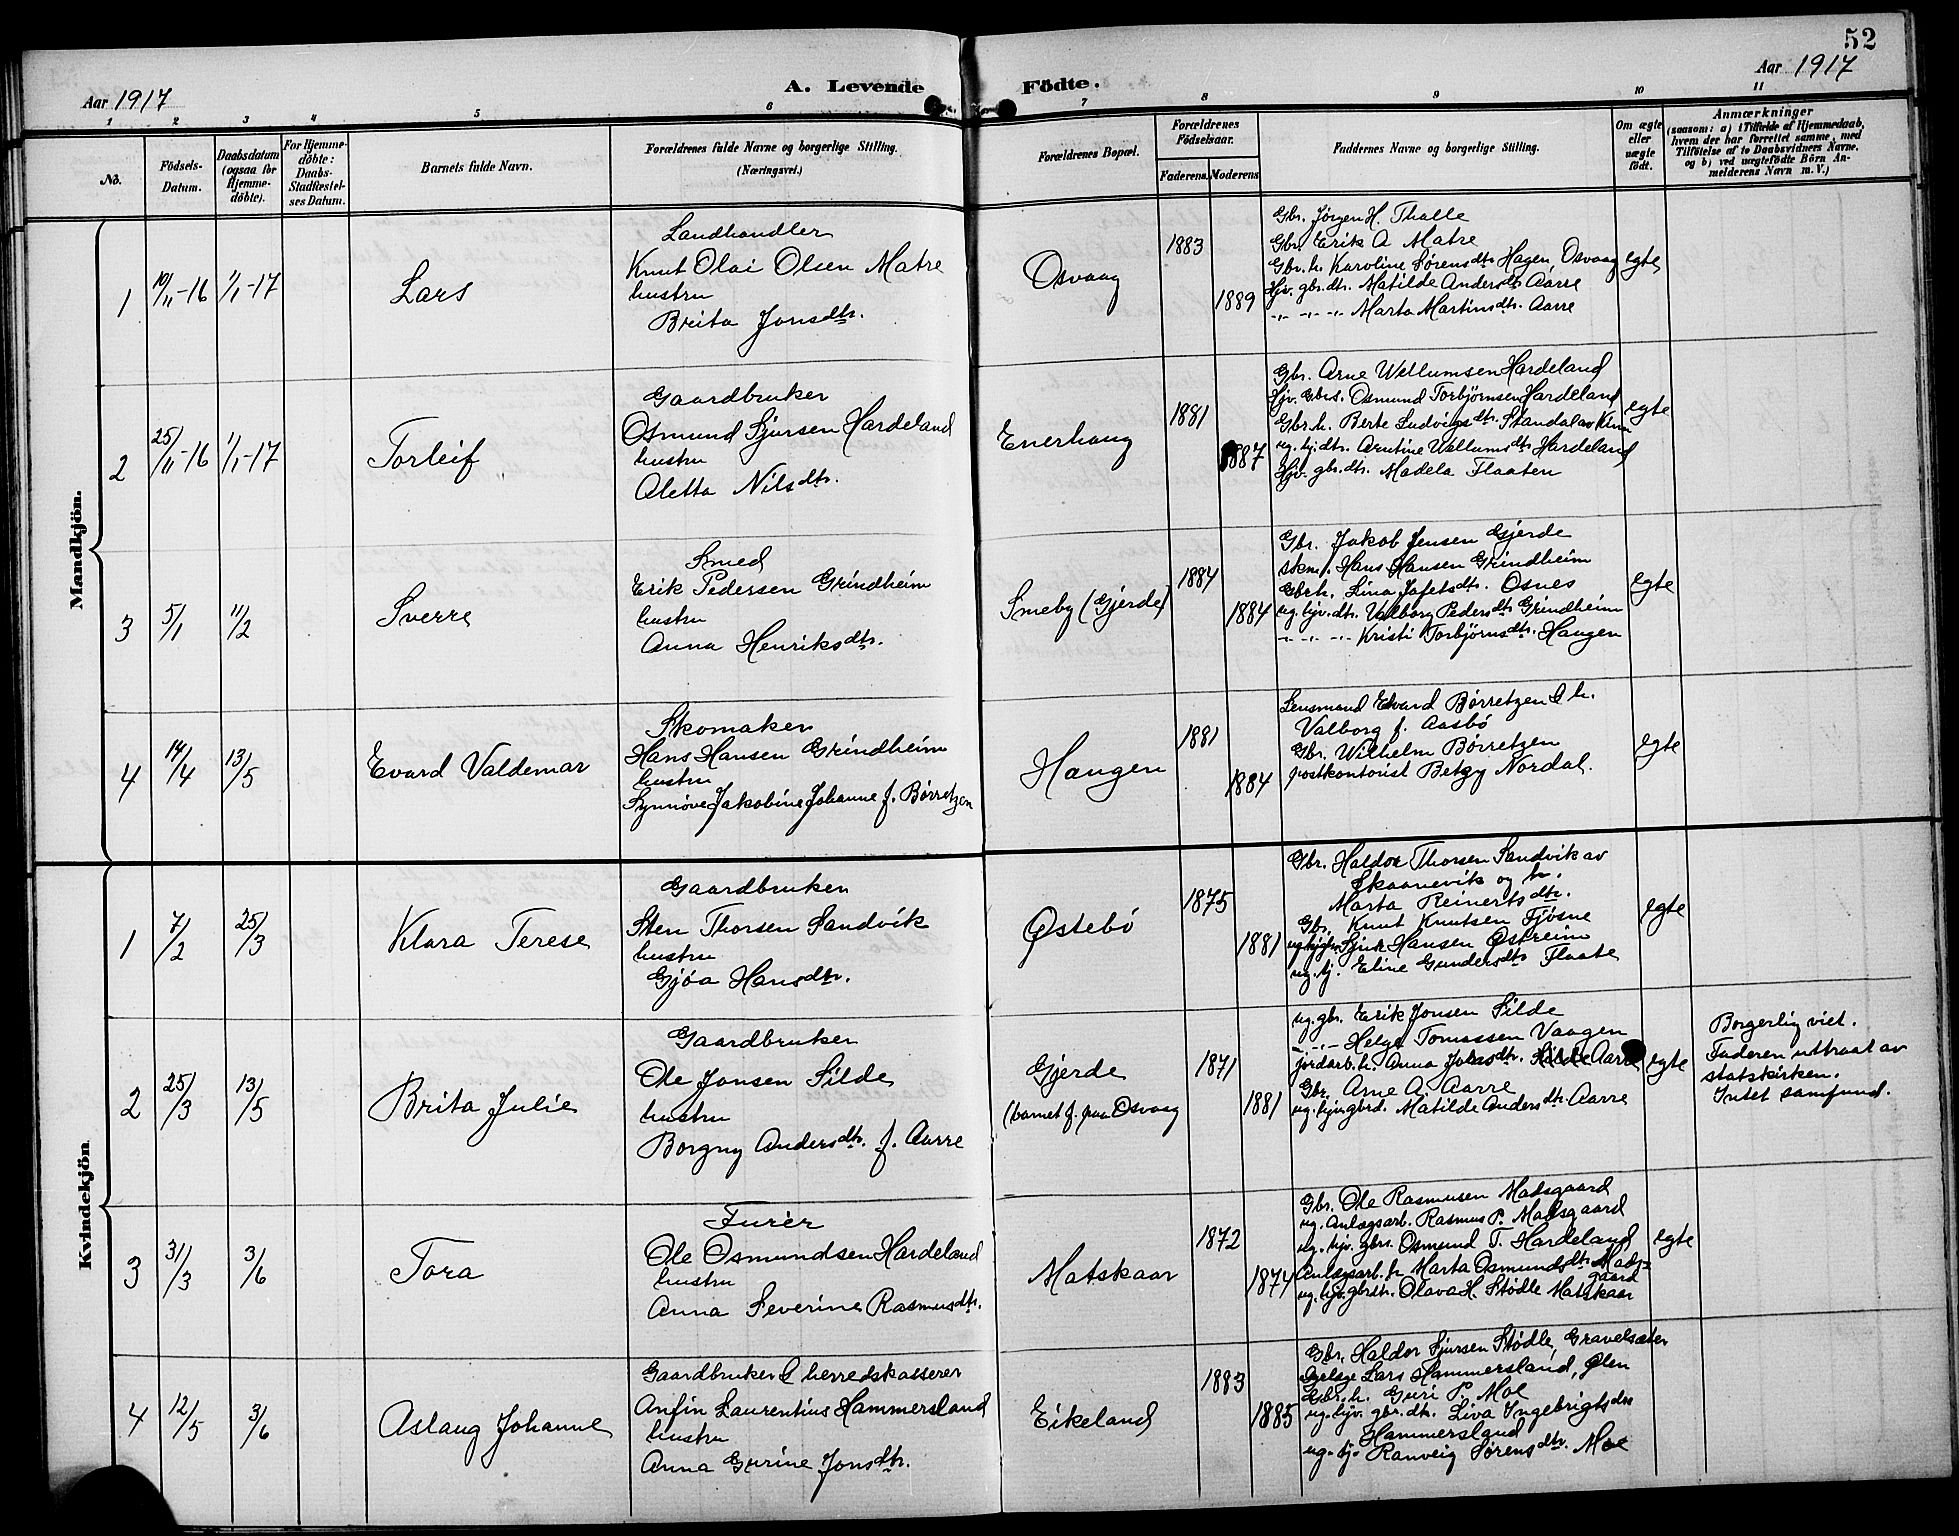 52
Aar 1917
A. Levende Födte.
Aar 1917
1 2 3 4 5 6 7 8 9 10 11
No.
Födsels-
Datum.
Daabsdatum
(ogsaa for
Hjemme-
döbte).
For Hjemme-
döbte:
Daabs-
Stadfæstel-
ses Datum.
Barnets fulde Navn.
Forældrenes fulde Navne og borgerlige Stilling.
(Næringsvei.)
Forældrenes Bopæl.
Forældrenes
Födselsaar.
Faderens. Moderens
Faddernes Navne og borgerlige Stilling.
Om ægte
eller
uægte
födt.
Anmærkninger
(saasom: a) i Tilfælde af Hjemmedaab,
hvem der har forrettet samme, med
Tilföielse af to Daabsvidners Navne,
og b) ved uægtefödte Börn An-
melderens Navn m. V.)
Mandkjön.
1 10/11-16 1/1-17
Lars
Landhandler
Knut Olai Olsen Matre
hustru
Brita Jonsdtr.
Osvaag
1883
1889
Gbr. Jørgen H. Thalle
Gbr. Erik A Matre
Gbr.h. Karoline Sørensdtr Hagen Osvaag
Hjv. gbr.dtr. Matilde Andersdtr Aarre
-"- -"- -"- Marta Martinsdtr. Aarre
egte
2 25/11-16 1/1-17
Torleif
Gaardbruker
Osmund Sjursen Hardeland
hustru
Aletta Nilsdtr.
Enerhaug
1881
1887
Gbr. Arne Wellumsen Hardeland
Hjv. Gbrs. Osmund Torbjørnsen Hardeland
Gbr.h. Berte Ludvigsdtr. Standal av Kinn
ug. hj. dtr. Arntine Wellumsdtr Hardeland
Hjv. gbr.dtr. Madela Flaaten
egte
3 5/1 11/2
Sverre
Smed
Erik Pedersen Grindheim
hustru
Anna Henriksdtr.
Smeby (Gjerde)
1884
1884
Gbr. Jakob Jensen Gjerde
skm. Hans Hansen Grindheim
Gbrh. Lina Jafetsdtr. Osnes
ug. hjv. dtr. Valborg Pedersdtr Grindheim
-"- -"- -"- Kristi Torbjørnsdtr. Haugen
egte
4 14/4 13/5
Evard Valdemar
Skomaker
Hans Hansen Grindheim
hustru
Synnøve Jakobine Johanne f. Børretzen
Haugen
1881
1884
Lensmand Edvard Børretzen & h.
Valborg f. Aasbö
Gbr. Wilhelm Børretzen
postkontorist Betzy Nordal.
egte
Kvindekjön
1 7/2 25/3
Klara Terese
Gaardbruker
Sten Thorsen Sandvik
hustru
Gjøa Hansdtr.
Østebø
1875
1881
Gbr. Haldor Thorsen Sandvik av
Skaanevik og h.
Marta Reinertsdtr.
Gbr. Knut Knutsen Fjøsne
Hansen Østreim
ug. hj. Eline Gundersdtr Flaate
egte
2 25/3 13/5
Brita Julie
Gaardbruker
Ole Jonsen Silde
hustru
Borgny Andersdtr. f. Aarre
Gjerde
(barnet f. paa Osvaag
1871
1881
ug. gbr. Erik Jonsen Silde
-"- -"- Helge Tomassen Vaagen
jordarb.h. Anna Aarre
Gbr. Arne A. Aarre
ug. hjv. gbrd. Matilde Andersdtr. Aarre
egte
Borgerlig viet.
Faderen uttraat av
statskirken.
Intet samfund.
3 31/3 3/6
Tora
Furér
Ole Osmundsen Hardeland
hustru
Anna Severine Rasmusdtr.
Matskaar
1872
1874
Gbr. Ole Rasmusen Madsgaard
ug. Anlægsarb. Rasmus P. Madsgaard
ug. hjv. gbrs. Osmund T. Hardeland
Anlægsarb. h. Marta Osmundsdtr. Mads=
gaard
ug. hjv. gbrdtr. Olava H. Stødle Matskaar
egte
4 12/5 3/6
Aslaug Johanne
Gaardbruker & herredskasserer
Anfin Laurentius Hammersland
hustru
Anna Gurine Jonsdtr.
Eikeland
1883
1885
Gbr. Haldor Sjursen Stødle, Gravelsæter
Lars Hammersland, Ølen
Gbr. h. Guri P. Moe
ug. hjv. gbr. dtr. Liva Ingebrigtsdtr
Hammersland
ug. hj. Ranveig Sørensdtr. Moe